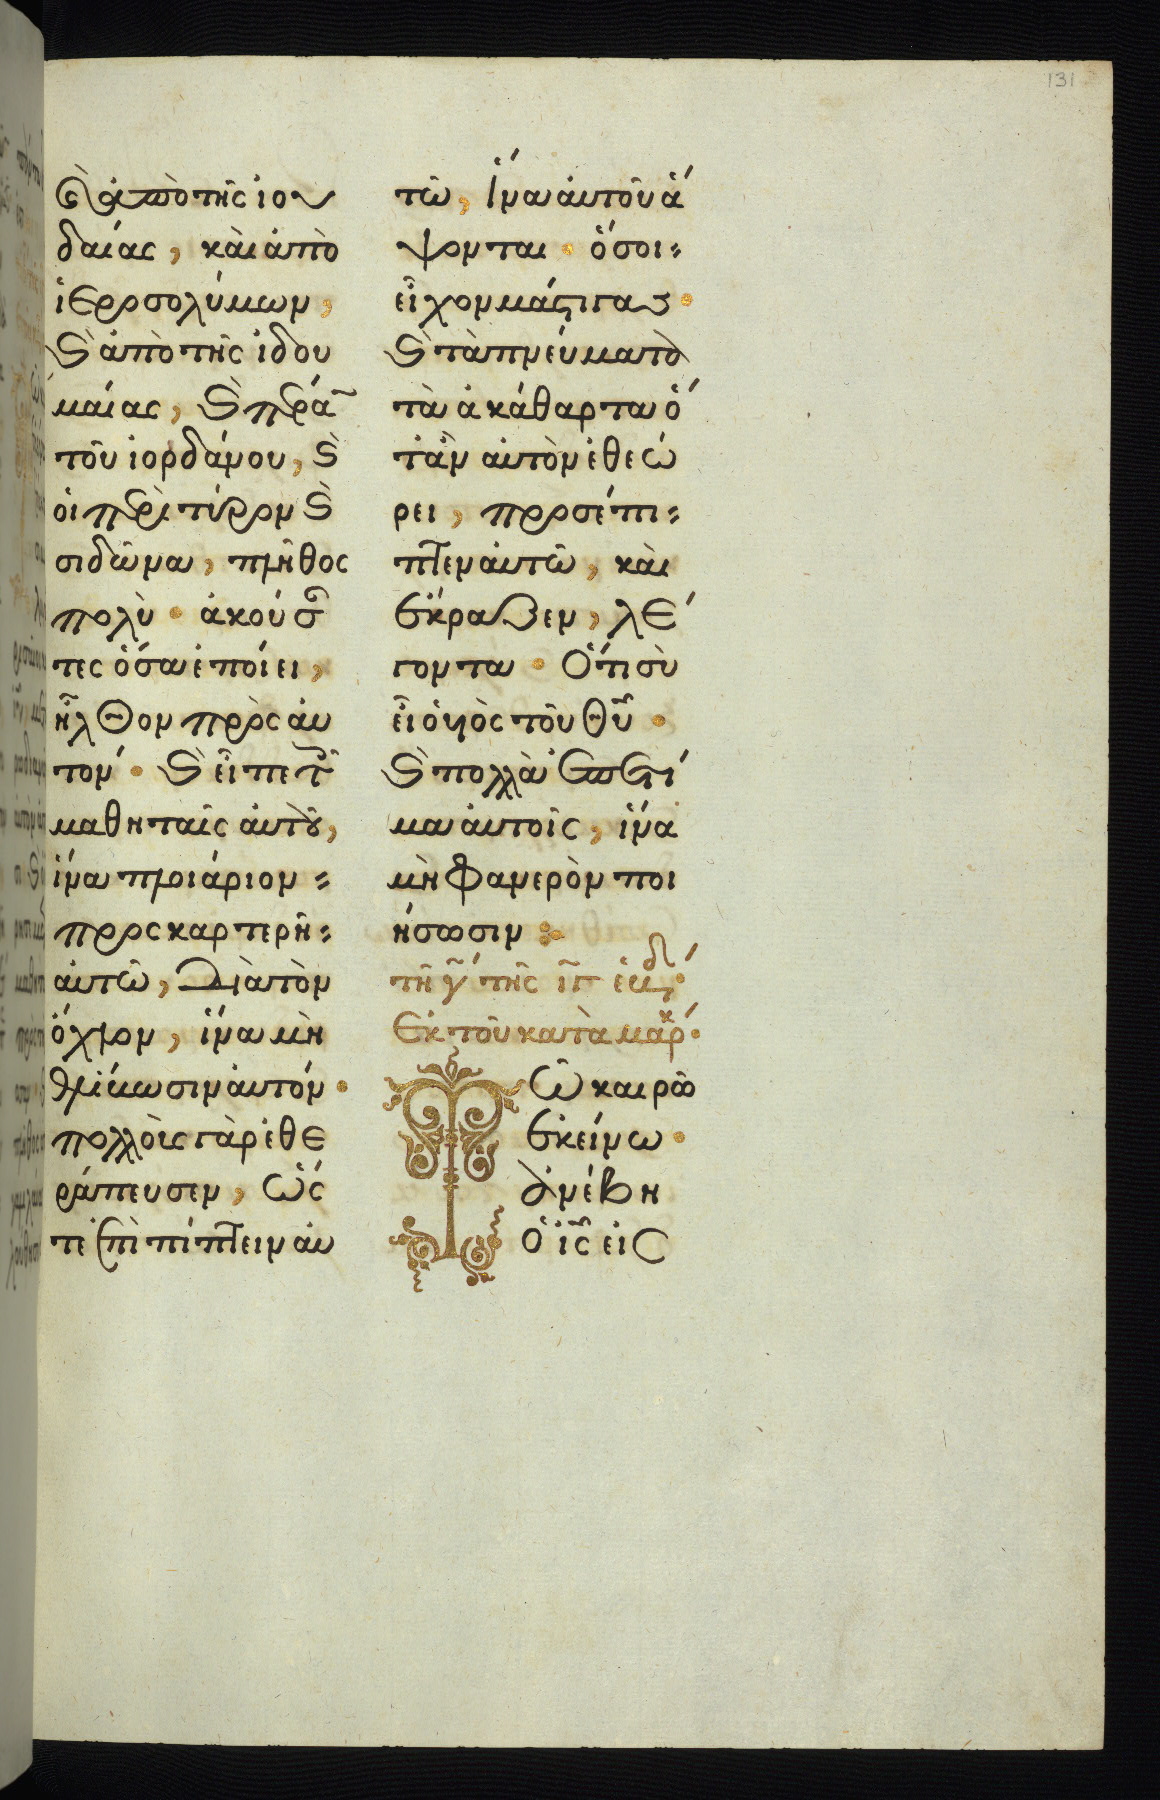 131
ϗ̀ ἀπὸ τῆς ἰου
δαίας, καὶ ἀπὸ
ἱεροσολύμων,
ϗ̀ ἀπὸ τῆς ἰδου
μαίας, ϗ̀ πέρα̃
τοῦ ἰορδάνου, ϗ̀
οἱ περὶ τύρον ϗ̀
σιδῶνα, πλῆθος
πολὺ · ἀκούσα̃
τες ὅσα ἐποίει,
ἦλθον πρὸς αὐ
τόν · ϗ̀ εἶπε τοῖς
μαθηταῖς αὐτοῦ,
ἵνα πλοιάριον
προσκαρτερῆ
αὐτῶ, διὰ τὸν
ὄχλον, ἵνα μὴ
θλίβωσιν αὐτόν ·
πολλοὺς γὰρ ἐθε
ράπευσεν, ὥσ
τε ἐπιπίπτειν αὐ
τῶ, ἵνα αὐτοῦ ἅ
ψονται · ὅσοι
εἶχον μάστιγας ·
ϗ̀ τὰ πνεύματα
τὰ ἀκάθαρτα ὅ
τἂν αὐτὸν ἐθεώ
ρει, προσέπι
πτεν αὐτῶ, καὶ
ἔκραζεν, λέ
γοντα · Ὅτι σὺ
εἶ ὁ υἱὸς τοῦ θῦ ·
ϗ̀ πολλὰ ἐπετί
μα αὐτοῖς, ἵνα
μὴ φανερὸν ποι
ήσωσιν ·
τῆ γ´ τῆς ιγ ἑβδ´
Ἐκ τοῦ κατὰ μάρκ ·
Τῶ καιρῶ
ἐκείνω ·
ἀνέβη
ὁ ἰς εἰς